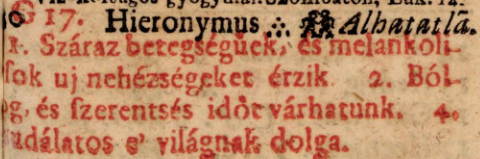 G 17. Hieronymus Alhatatlã.
1. Száraz betegségüek, és melankoli-
sok uj nehézségeket érzik. 2. Ból-
og, és szerentsés időt várhatunk. 4.
sudálatos e' világnak dolga.